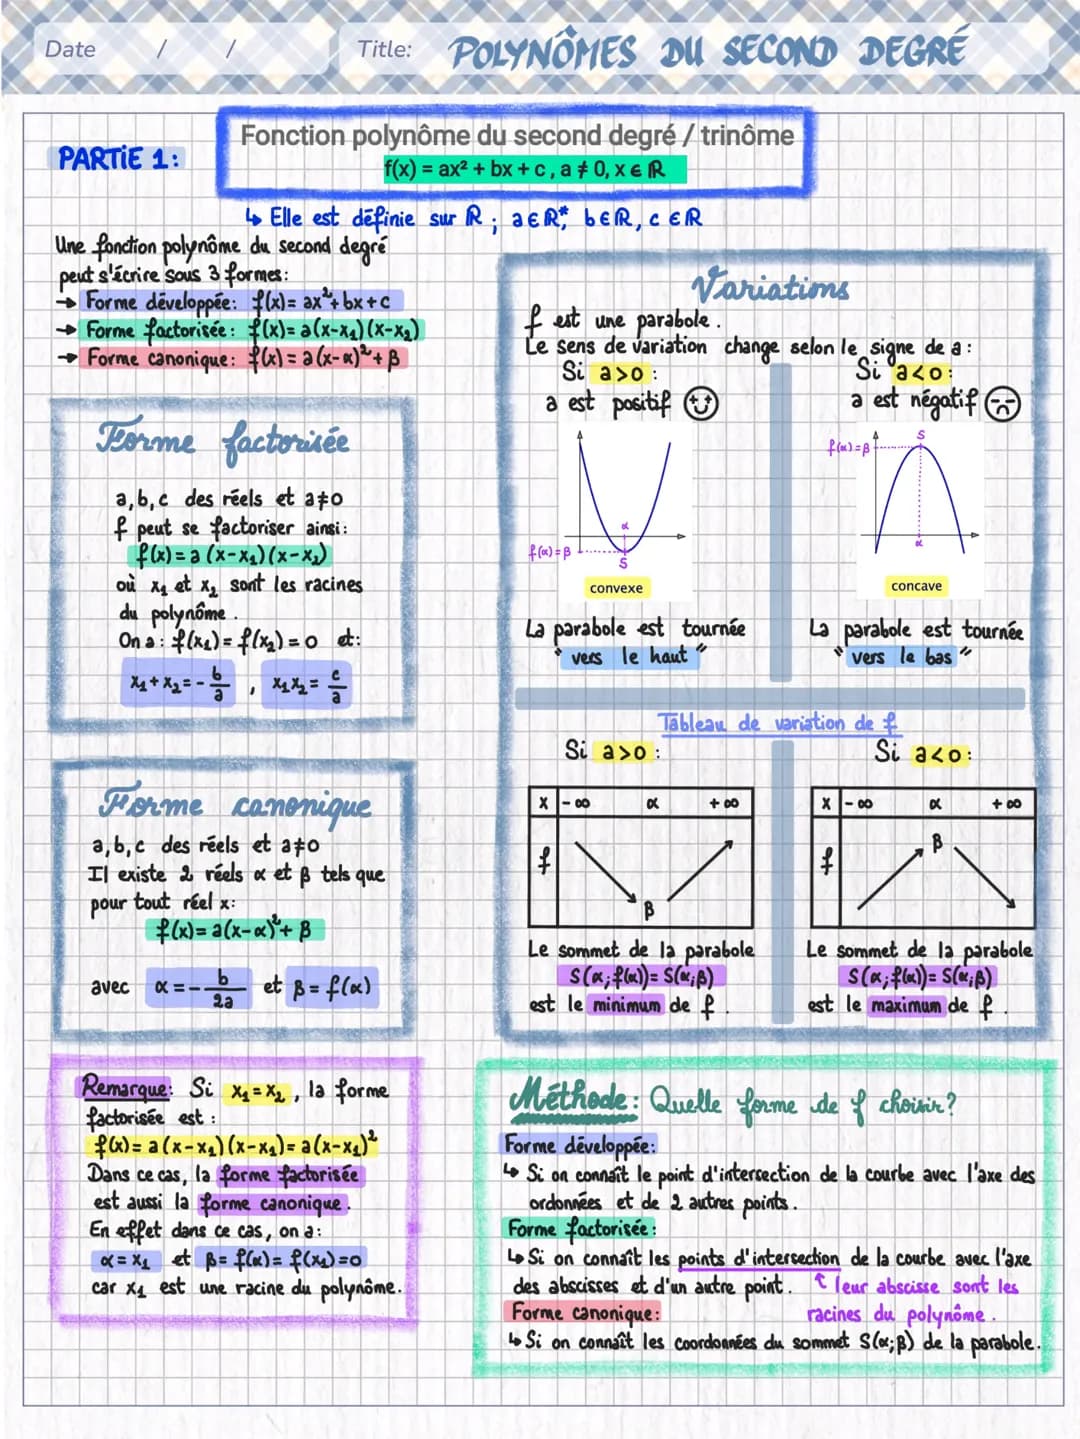 Date / /
Title: POLYNÔMES DU SECOND DEGRÉ
PARTIE 1:
Fonction polynôme du second degré / trinôme
f(x) = ax² + bx + c , a ≠ 0, x ∈ ℝ
↳ Elle est définie sur ℝ ; a∈ℝ*, b∈ℝ, c∈ℝ
Une fonction polynôme du second degré
peut s'écrire sous 3 formes:
→ Forme développée: f(x)= ax²+bx+c
→ Forme factorisée: f(x)= a(x-x₁)(x-x₂)
→ Forme canonique: f(x) = a(x-α)²+β
Forme factorisée
a,b,c des réels et a≠0
f peut se factoriser ainsi:
f(x) = a (x-x₁)(x-x₂)
où x₁ et x₂ sont les racines
du polynôme.
On a: f(x₁)= f(x₂) = 0 et:
x₁+x₂ = - b/a , x₁x₂ = c/a
Forme canonique
a,b,c des réels et a≠0
Il existe 2 réels α et β tels que
pour tout réel x:
f(x)= a(x-α)²+ β
avec α = - b/2a et β= f(α)
Remarque: Si x₁ = x₂ , la forme
factorisée est :
f(x)= a(x-x₁)(x-x₁)= a(x-x₁)²
Dans ce cas, la forme factorisée
est aussi la forme canonique.
En effet dans ce cas, on a:
α = x₁ et β= f(α)= f(x₁)=0
car x₁ est une racine du polynôme.
Variations
f est une parabole.
Le sens de variation change selon le signe de a :
Si a>0 :
a est positif
f(α)=β
α
S
convexe
La parabole est tournée
" vers le haut "
Si a<0:
a est négatif
f(α)=β
S
α
concave
La parabole est tournée
" vers le bas "
Tableau de variation de f
Si a>0 :
x -∞ α +∞
f
β
Le sommet de la parabole
S(α;f(α))= S(α;β)
est le minimum de f.
Si a<0:
x -∞ α +∞
β
f
Le sommet de la parabole
S(α;f(α))= S(α;β)
est le maximum de f.
Méthode: Quelle forme de f choisir?
Forme développée:
↳ Si on connaît le point d'intersection de la courbe avec l'axe des
ordonnées et de 2 autres points.
Forme factorisée:
↳ Si on connaît les points d'intersection de la courbe avec l'axe
des abscisses et d'un autre point. ↑ leur abscisse sont les
racines du polynôme.
Forme canonique:
↳ Si on connaît les coordonnées du sommet S(α;β) de la parabole.